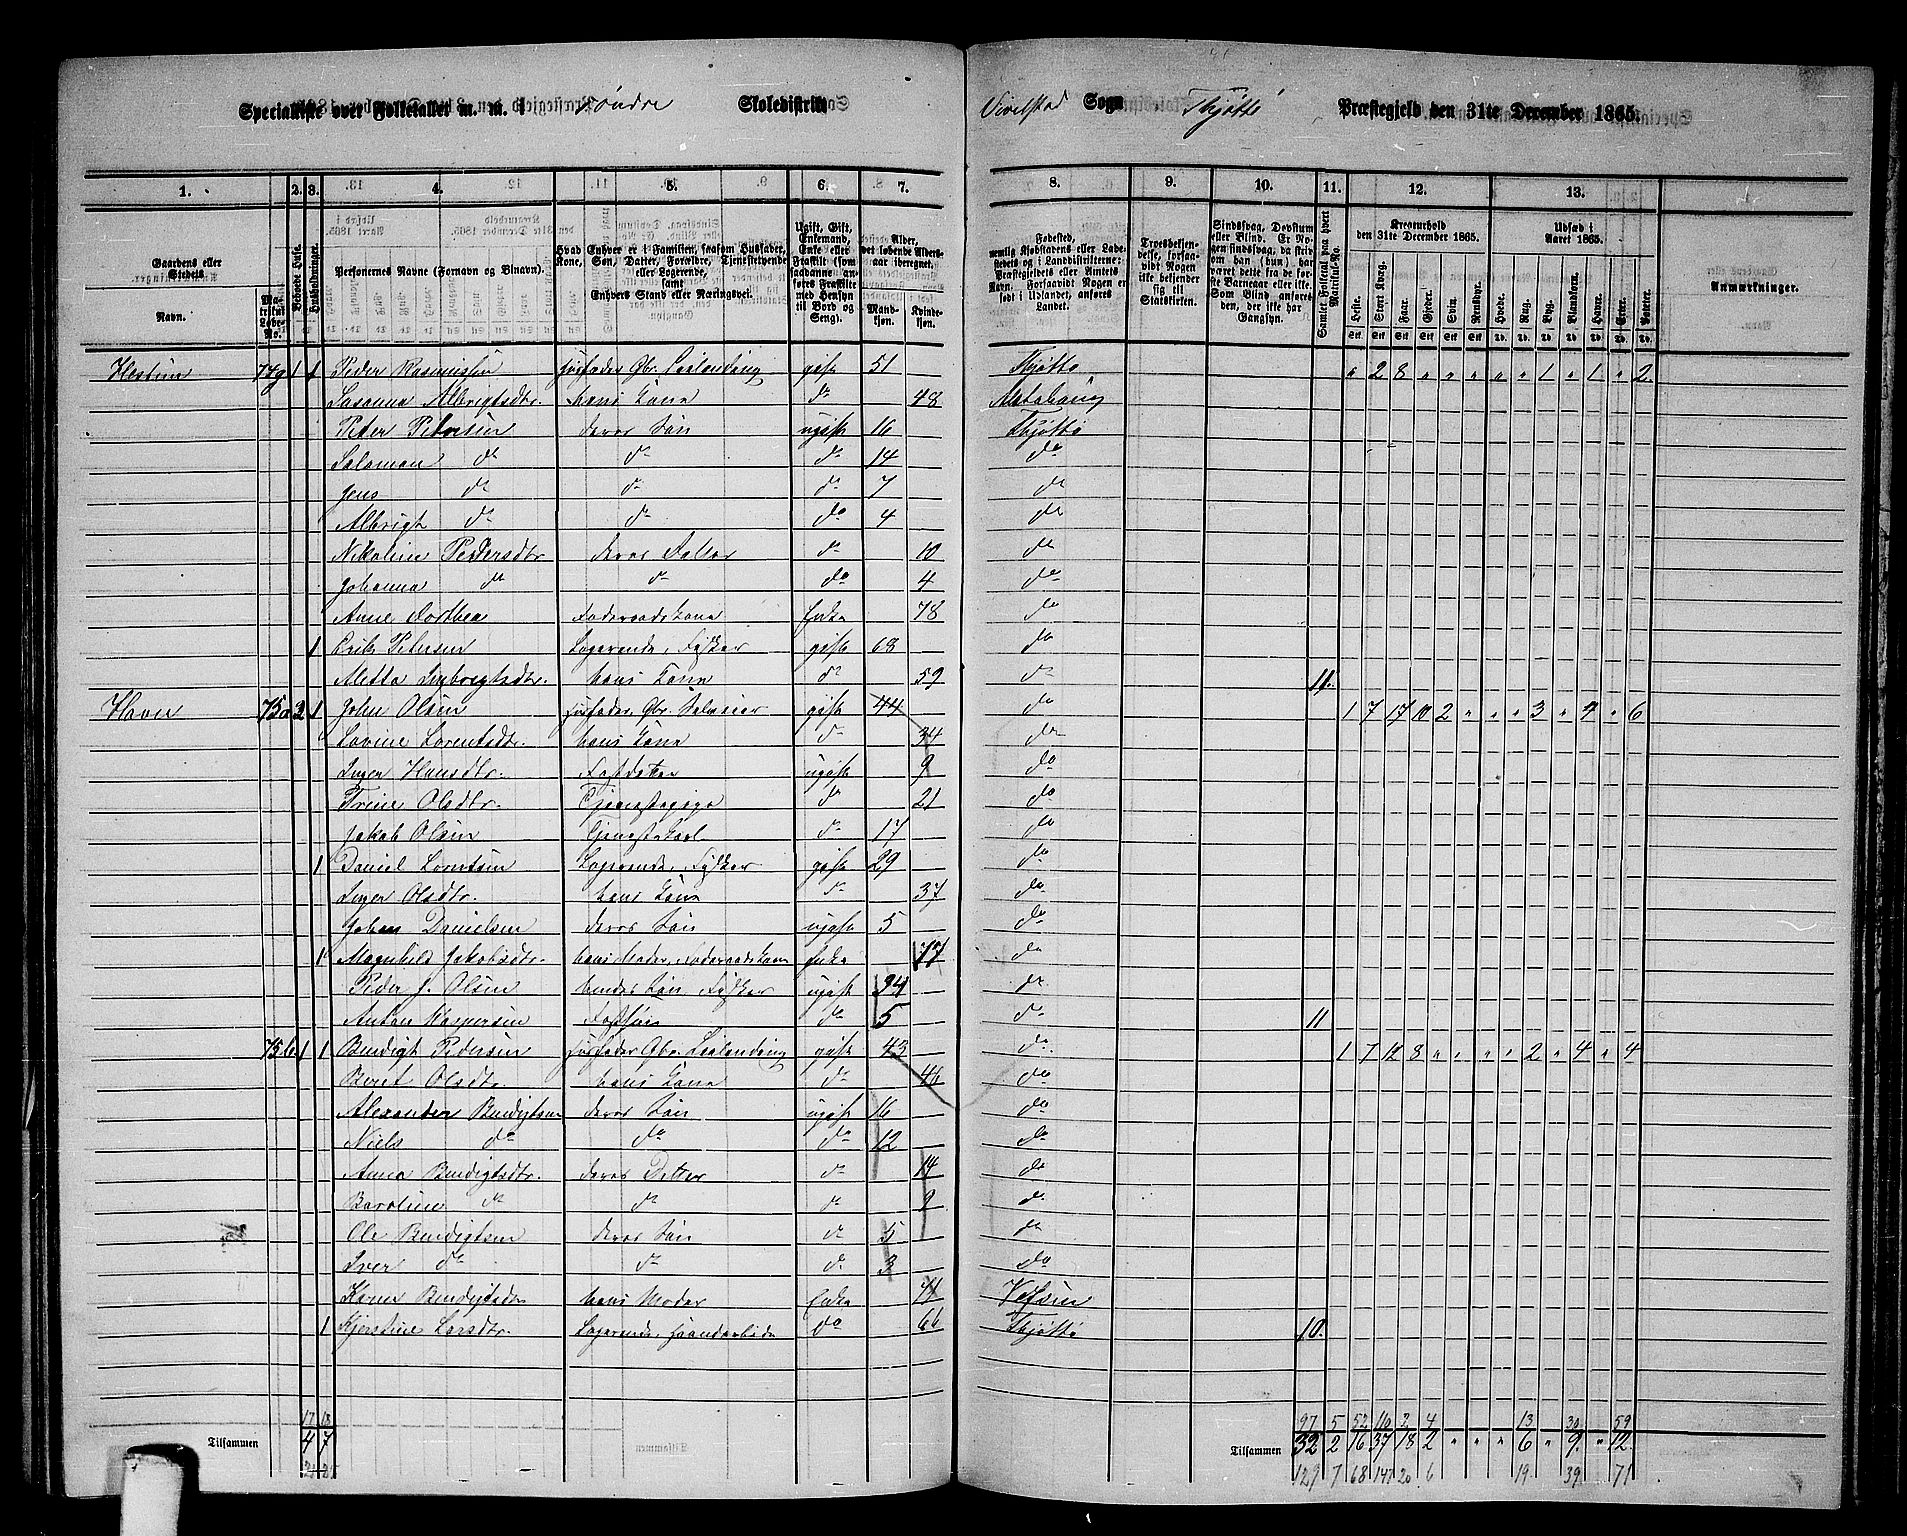 Specialliste over Folketallet m. m. i Søndre Skoledistrikt Vivelstad Sogn Thjøttø Præstegjeld den 31te December 1865.
1. 2. 3. 4. 5. 6. 7. 8. 9. 10. 11. 12. 13.
Gaardens eller Stedets Navn. Matrikul Løbe-No. Beboede Huse. Husholdninger. Personernes Navne (Fornavn og Binavn). Hvad Enhver er i Familien, saasom Husfader, Kone, Søn, Datter, Forældre, Tjenestetyende eller Logerende, samt Enhvers Stand eller Næringsvei. Ugift, Gift, Enkemand, Enke eller Fraskilt (som saadanne anføres Fraskilte med Hensyn til Bord og Seng). Alder, det løbende Aldersaar iberegnet. Mandkjøn. Kvindekjøn.
Fødested, nemlig Kjøbstadens eller Ladestedets og i Landdistrikterne: Præstegjeldets eller Amtets Navn. Forsaavidt Nogen er født i Udlandet, anføres Landet. Troesbekjendelse, forsaavidt Nogen ikke bekjender sig til Statskirken. Sindssvag, Døvstum eller Blind. Er Nogen sindssvag, da skrives om han (hun) har været dette fra de første Barneaar eller ikke. Som Blind anføres den, der ikke har Gangsyn. Samlet Folketal paa hvert Matrikul-No. Kreaturhold den 31te December 1865. Udsæd i Aaret 1865. Anmærkninger.
Heste. Stort Kvæg. Faar. Gjeder. Sviin. Rensdyr. Hvede. Rug. Byg. Blandkorn. Havre. Erter. Poteter.
Stk Stk Stk Stk Stk Stk Td. Td. Td. Td. Td. Td. Td.
74g 1 1 Peder Rasmussen Husfader Gbr. Leilending gift 51 Thjøttø " 2 8 " " " " " 1 " 1 " 2
Susanna Albrigtsdtr. hans Kone do 48 Alstahaug
Peter Petersen deres Søn ugift 16 Thjøttø
Salomon do do do 14 do
Jens do do do 7 do
Albrigt do do do 4 do
Nikoline Pedersdtr. deres Datter do 10 do
Johanna do do do 4 do
Anne Dorthea Føderaadskone Enke 78 do
1 Erik Petersen Logerende, Fisker gift 68 do
Aletta Ingbrigtsdtr. hans Kone do 59 do 11.
75a 2 1 John Olsen Husfader Gbr. Selveier gift 44 do 1 7 17 10 2 " " " 3 " 4 " 6
Lovine Lorentsdtr. hans Kone do 34 do
Inger Hansdtr. Fostdatter ugift 9 do
Trine Olsdtr. Tjenestepige do 21 do
Jakob Olsen Tjenestekarl do 17 do
1 Daniel Lorntsen Logerende, Fisker gift 29 do
Inger Olsdtr. hans Kone do 37 do
Johan Danielsen deres Søn ugift 5 do
1 Magnhild Jakobsdtr. hans Moder, Føderaadskone Enke 77 do
Peder J. Olsen hendes Søn, Fisker ugift 34 do
Anton Kaspersen Fostsøn do 5 do 11
75b 1 1 Bendigt Pedersen Husfader Gbr. Leilending gift 43 do 1 7 12 8 " " " " 2 " 4 " 4
Beret Olsdtr. hans Kone do 46 do
Alexander Bendigtsen deres Søn ugift 16 do
Niels do do do 12 do
Anna Bendigtsdtr. deres Datter do 14 do
Karoline do do do 9 do
Ole Bendigtsen deres Søn do 5 do
Iver do do do 3 do
Karen Bendigtsdtr hans Moder Enke 71 Vefsen
1 Kjerstine Larsdtr. Logerende, Haandarbeide do 66 Thjøttø 10.
17 18 97 5 52 110 2 4 13 30 59
Tilsammen 4 7 Tilsammen 32 2 16 37 18 2 " " " 6 " 9 " 12
21 25 129 7 68 147 20 6 19 39 71